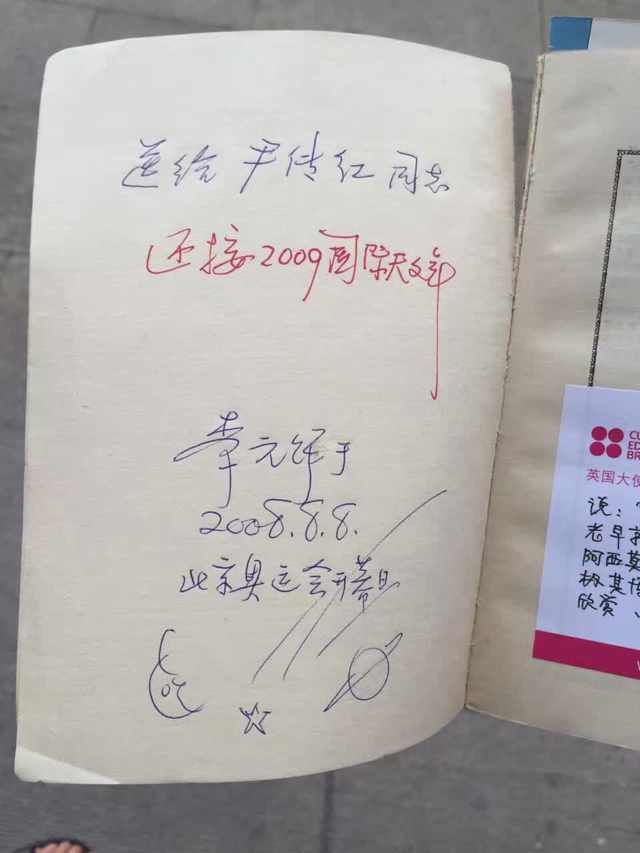 送给 尹传红 同志
迎接2009国际天文年
李元 于
2008.8.8.
北京奥运会开幕日
CU
ED
BR
英国大使
说：
老早
阿西莫
极其
欣赏